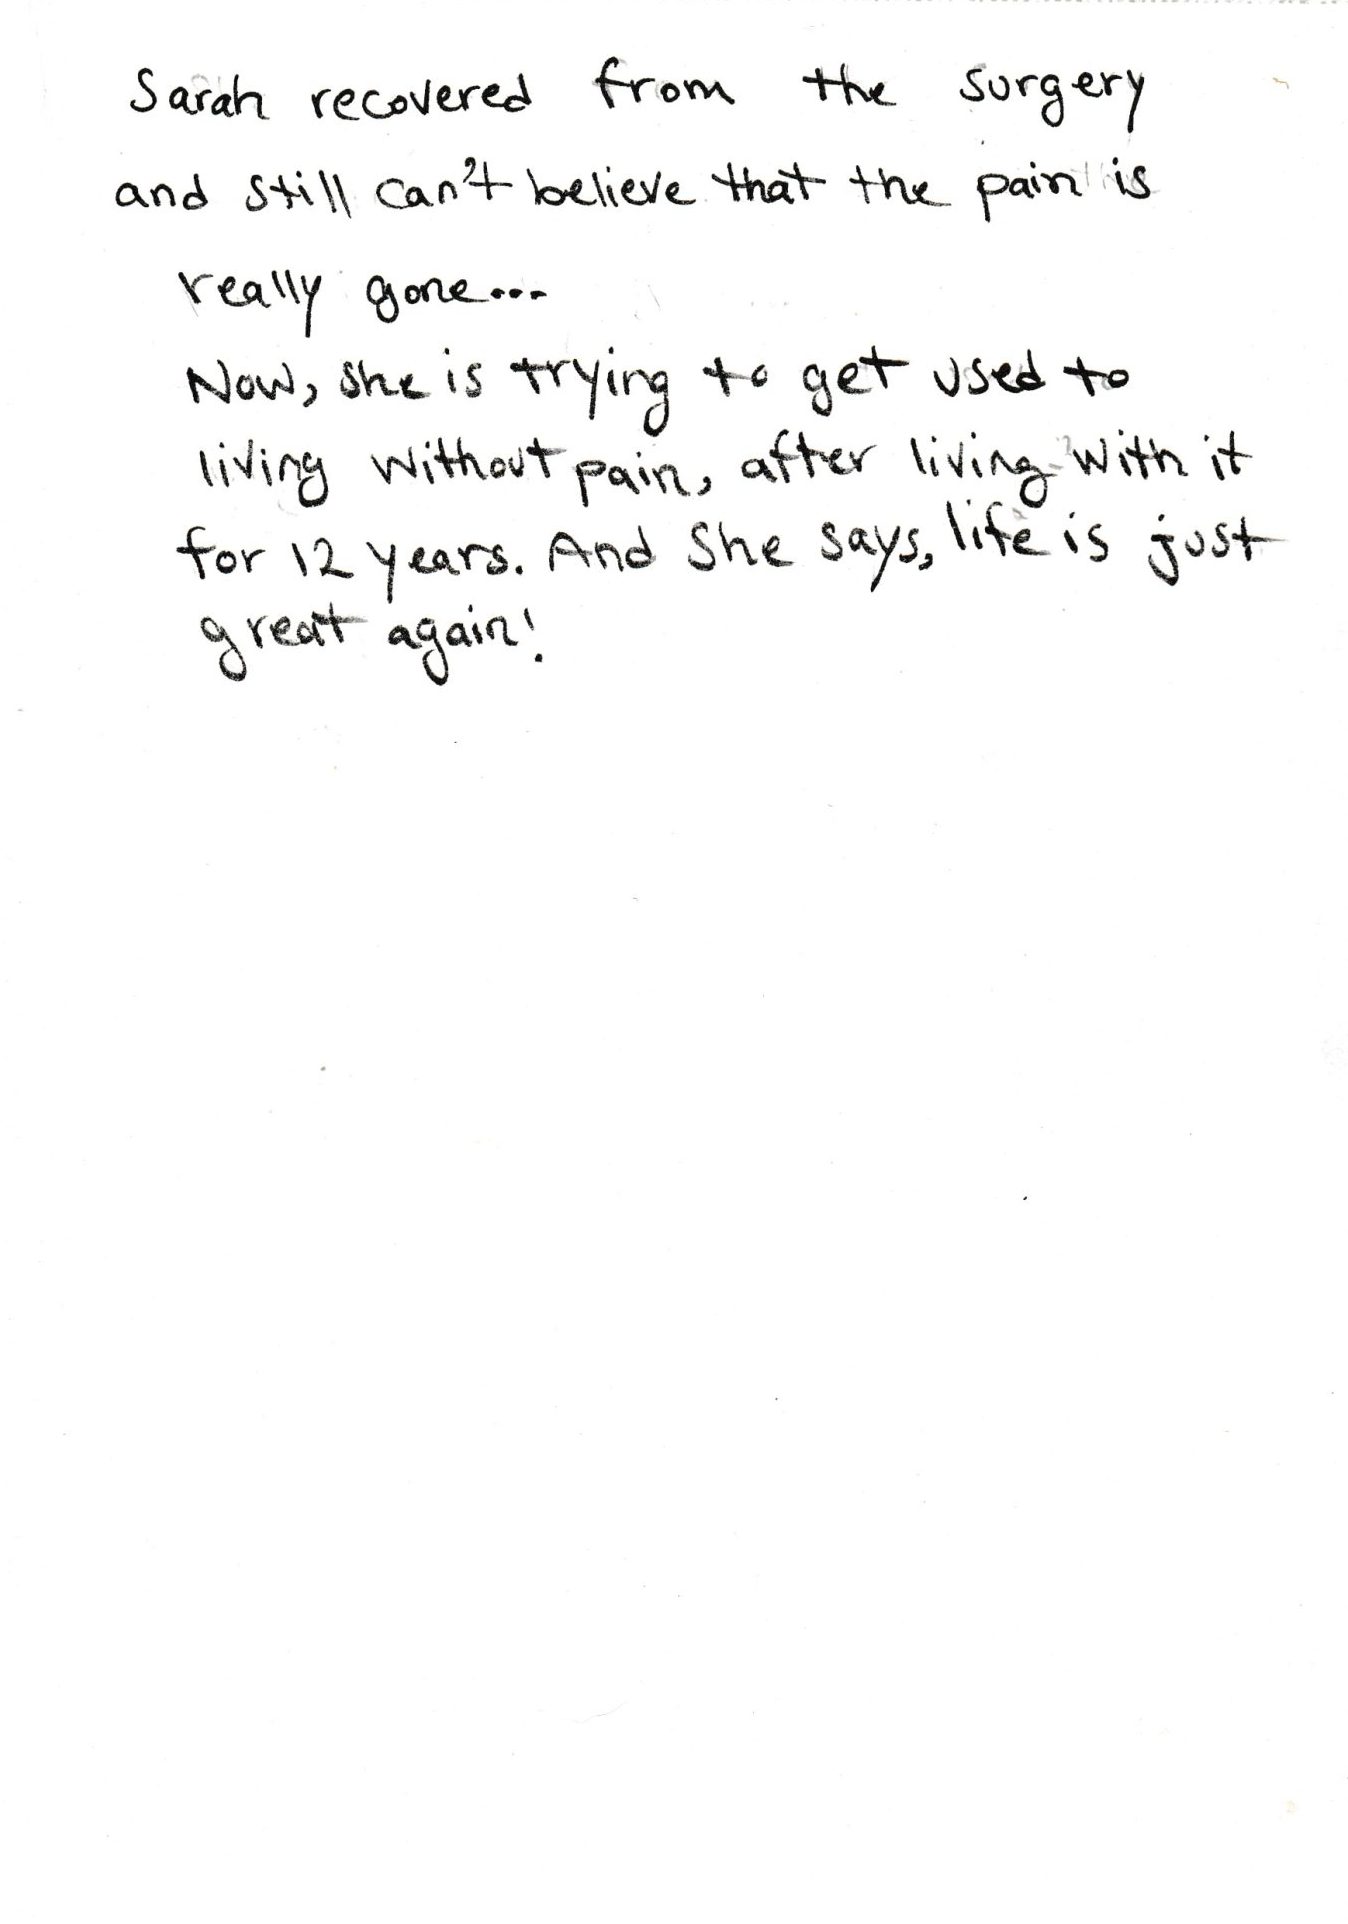 Sarah recovered from the surgery
and still can't believe that the pain is
really gone...
Now, she is trying to get used to
living without pain, after living with it
for 12 years. And She says, life is just
great again!